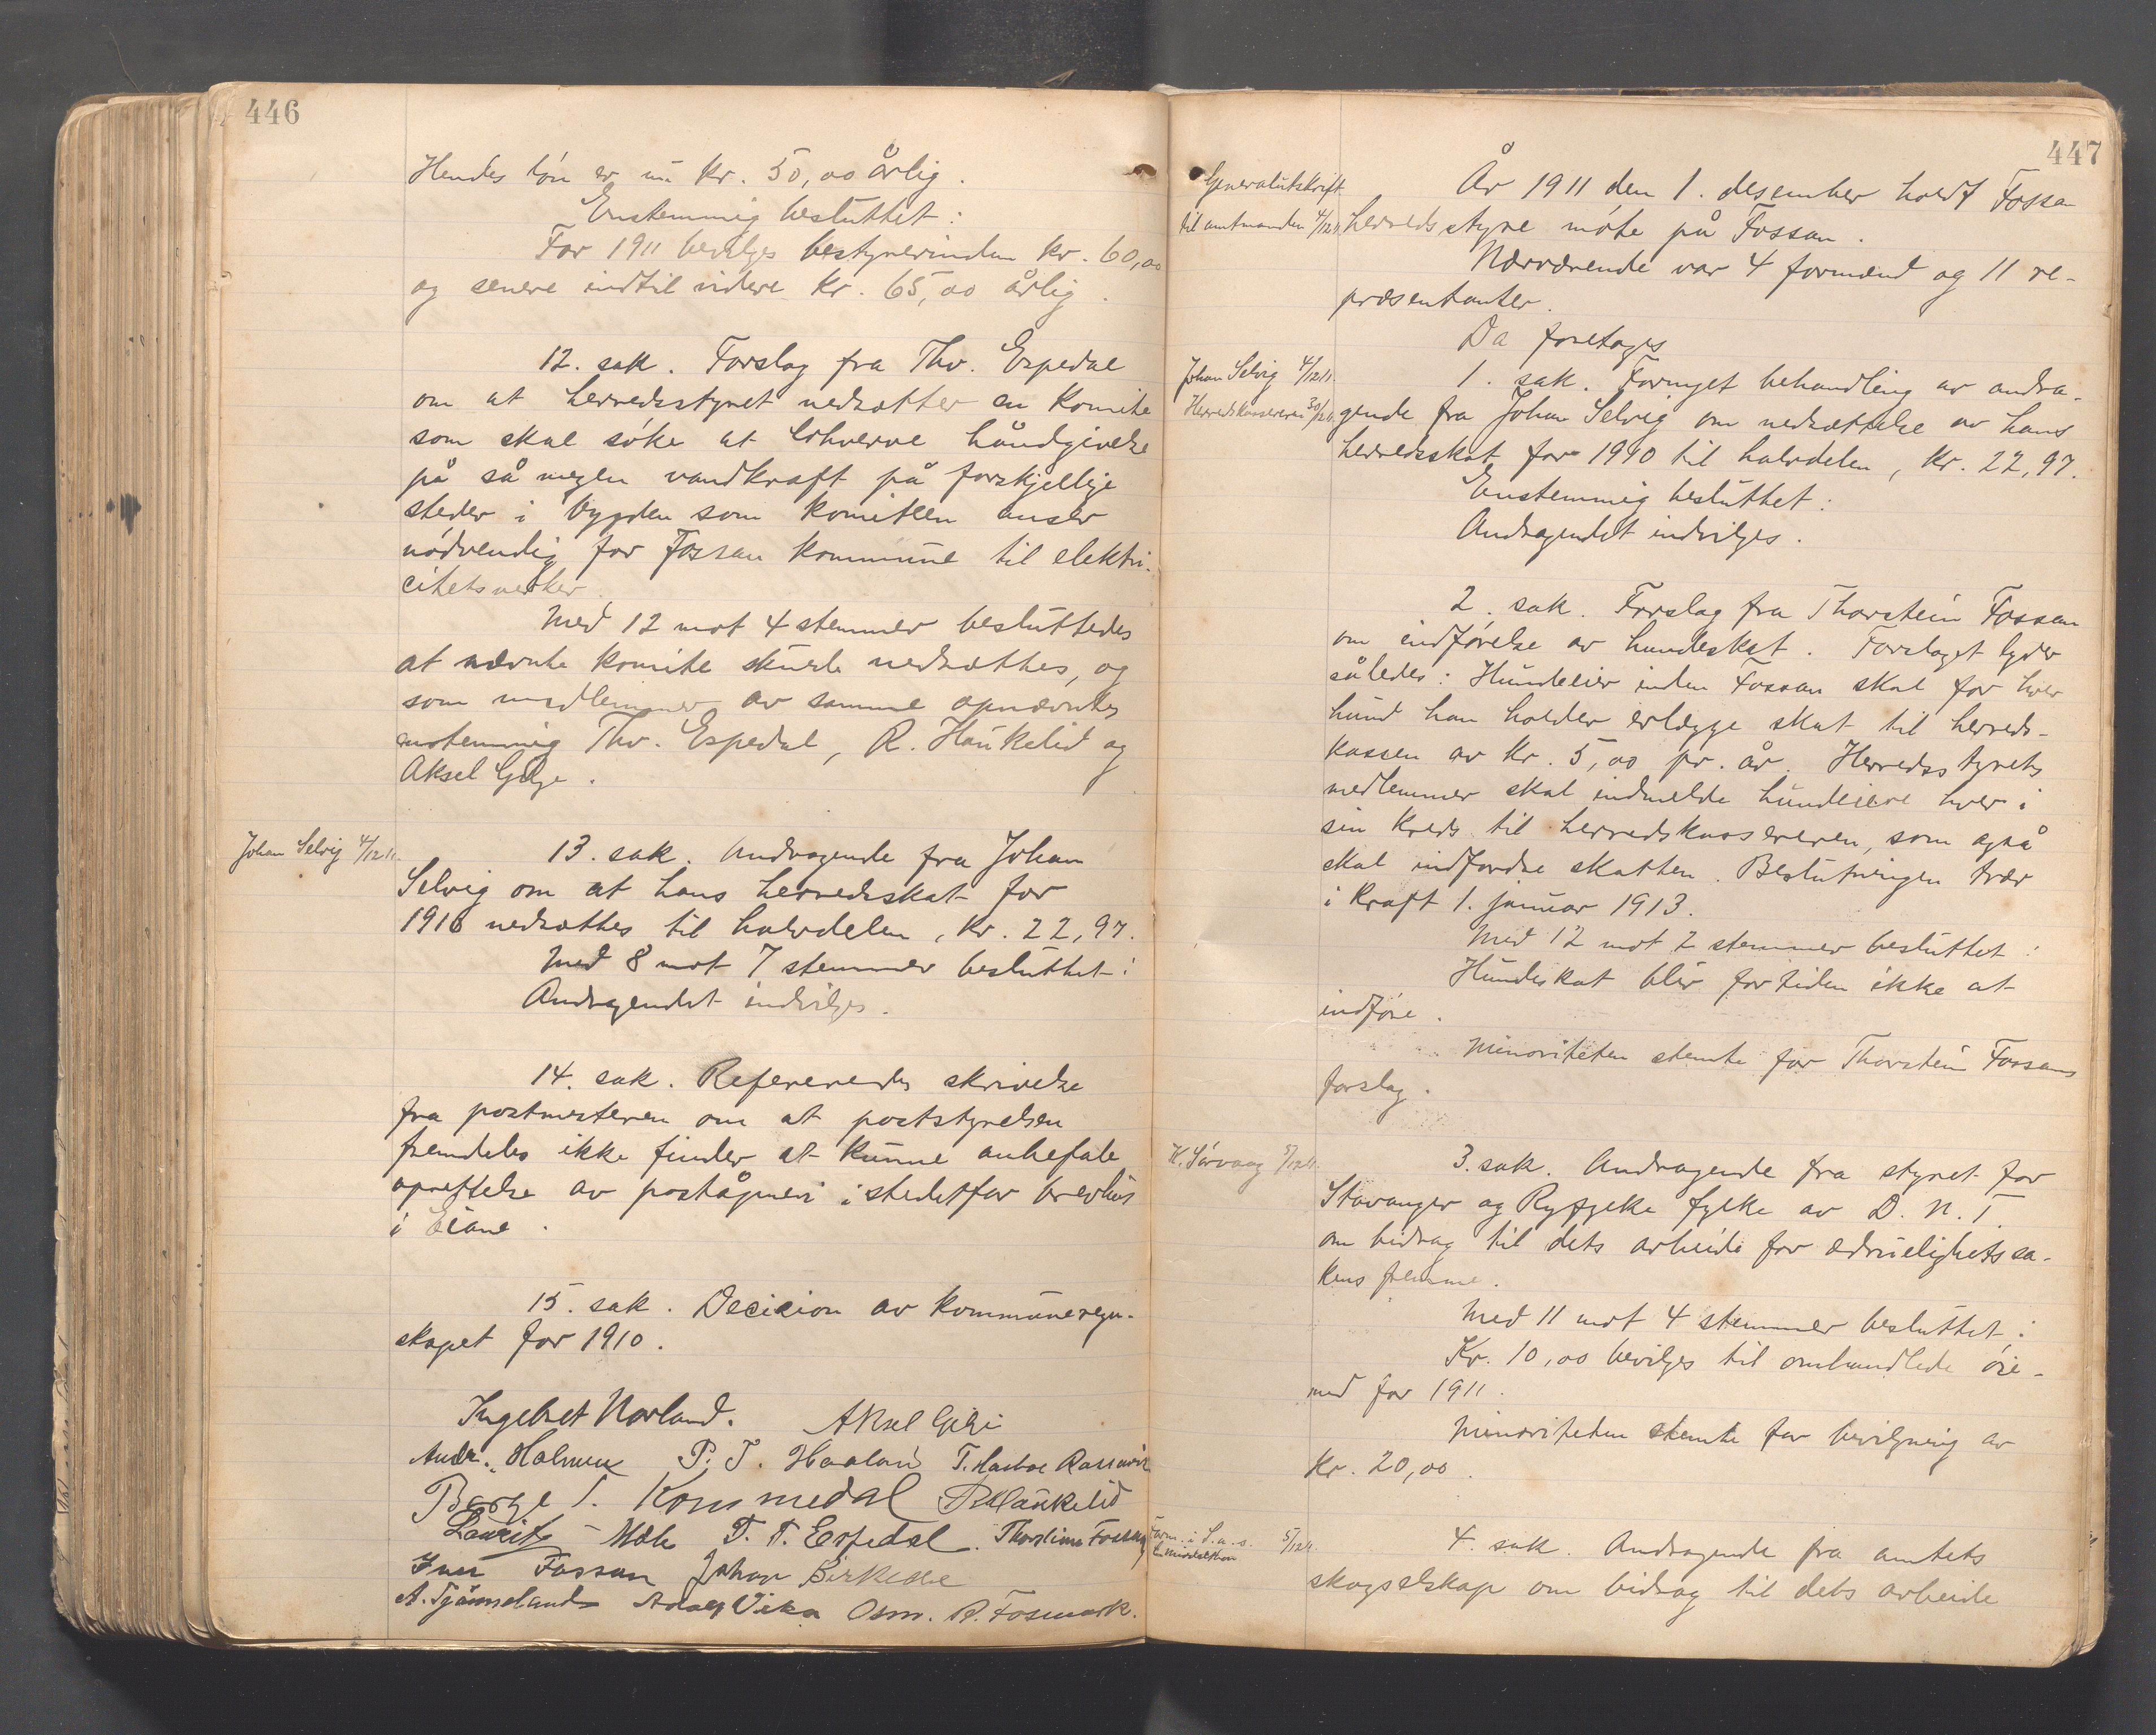 446
Hendes løn er nu kr. 50,00 årlig.
Enstemmig besluttet:
For 1911 bevilges bestyrerinden kr. 60,00
og senere indtil videre kr. 65,00 årlig.
12. sak. Forslag fra Thv. Espedal
om at herredsstyret nedsætter en komite
som skal søke at erhverve håndgivelse
på så megen vandkraft på forskjellige
steder i bygden som komiteen anser
nødvendig for Fossan kommune til elektri-
citetsverker.
Med 12 mot 4 stemmer besluttedes
at nævnte komite skulde nedsættes, og
som medlemmer av samme opnævntes
enstemmig Thv. Espedal, R. Haukelid og
Aksel Gilje.
Johan Selvig 4/12 11.
13. sak. Andragende fra Johan
Selvig om at hans herredsskat for
1910 nedsættes til halvdelen, kr. 22,97.
Med 8 mot 7 stemmer besluttet:
Andragendet indvilges.
14. sak. Refereredes skrivelse
fra postmesteren om at poststyrelsen
fremdeles ikke finder at kunne anbefale
oprettelse av poståpneri istedetfor brevhus
i Eiane.
15. sak. Decision av kommuneregn-
skapet for 1910.
Ingebret Norland. Aksel Gilje
Andr. Holmen P. T. Haaland T.
Børge T. Kommedal R Haukelid
Lauritz Mæle T. T. Espedal. Thorstein Fossan
Iver Fossan Johan Birkeland
A. Tjønneland Adolf Vika Osm. A. Fosmark.
447
Generalutskrift
til amtmanden 4/12 11.
År 1911 den 1. desember holdt Fossan
herredsstyre møte på Fossan.
Nærværende var 4 formænd og 11 re-
præsentanter.
Da foretages
Johan Selvig 4/12 11.
Herredskassereren 30/12 11.
1. sak. Fornyet behandling av andra-
gende fra Johan Selvig om nedsættelse av hans
herredsskat for 1910 til halvdelen, kr. 22,97.
Enstemmig besluttet:
Andragendet indvilges.
2. sak. Forslag fra Thorstein Fossan
om indførelse av hundeskat. Forslaget lyder
således: Hundeeier inden Fossan skal for hver
hund han holder erlægge skat til herreds-
kassen av kr. 5,00 pr. år. Herredsstyrets
medlemmer skal indmelde hundeiere hver i
sin kreds til herredskassereren, som også
skal indfordre skatten. Beslutningen trær
i kraft 1. januar 1913.
Med 12 mot 2 stemmer besluttet:
Hundeskat blir for tiden ikke at
indføre.
Minoriteten stemte for Thorstein Fossans
forslag.
K. Sørvaag 5/12 11.
3. sak. Andragende fra styret for
Stavanger og Ryfylke fylke av D. N. T.
om bidrag til dets arbeide for ædruelighetssa-
kens fremme.
Med 11 mot 4 stemmer besluttet:
Kr. 10,00 bevilges til omhandlede øie-
med for 1911.
Minoriteten stemte for bevilgning av
kr. 20,00.
Form. i S. a. s.
5/12 11.
4. sak. Andragende fra amtets
skogselskap om bidrag til dets arbeide